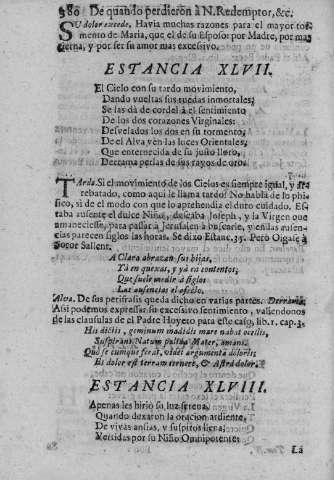 380 De quando perdieron à N. Redemptor, &c.
SU dolor excede. Havia muchas razones para el mayor tor-
mento de Maria, que el de su Esposo por Madre, por mas
tierna, y por ser su amor mas excessivo.
ESTANCIA XLVII.
El Cielo con su tardo movimiento,
Dando vueltas sus ruedas inmortales,
Se las dà de cordel à el sentimiento
De los dos corazones Virginales:
Desvelados los dos en su tormento,
De el Alva vèn las luces Orientales,
Que enternecida de su justo lloro,
Derrama perlas de sus rayos de oro.
TArdo. Si el movimiento de los Cielos es siempre igual, y
rebatado, como aqui le llama tardo? No habla de lo phi-
sico, si de el modo con que lo aprehendia el duro cuidado. Es-
taba ausente el dulce Niño, deseaba Joseph, y la Virgen que
amaneciesse, para passar à Jerusalèn à buscarle, y en las ausen-
cias parecen siglos las horas. Se dixo Estanc. 35. Però Oigase à
Sallent.
A Clara abrazan sus hijas,
Yà en quexas, y yà en contentos,
Que suele medir à siglos
Las ausencias el afecto.
Alva. De su perifrasis queda dicho en varias partes. Derrama.
Assi podemos expressar su excessivo sentimiento, valiendonos
de las clausulas de el Padre Hoyero para este caso, lib. 1. cap. 3.
His dictis, geminum madidis mare nabat ocellis,
Suspirans Natum pulchra Mater, amans.
Quo se cumque ferat, videt argumenta doloris:
Et dolor est terram cernere, & Astra dolor.
ESTANCIA XLVIII.
Apenas les hirió su luz serena,
Quando dexaron la oracion ardiente,
De vivas ansias, y suspiros llena,
Vertidas por su Niño Omnipotente:
La